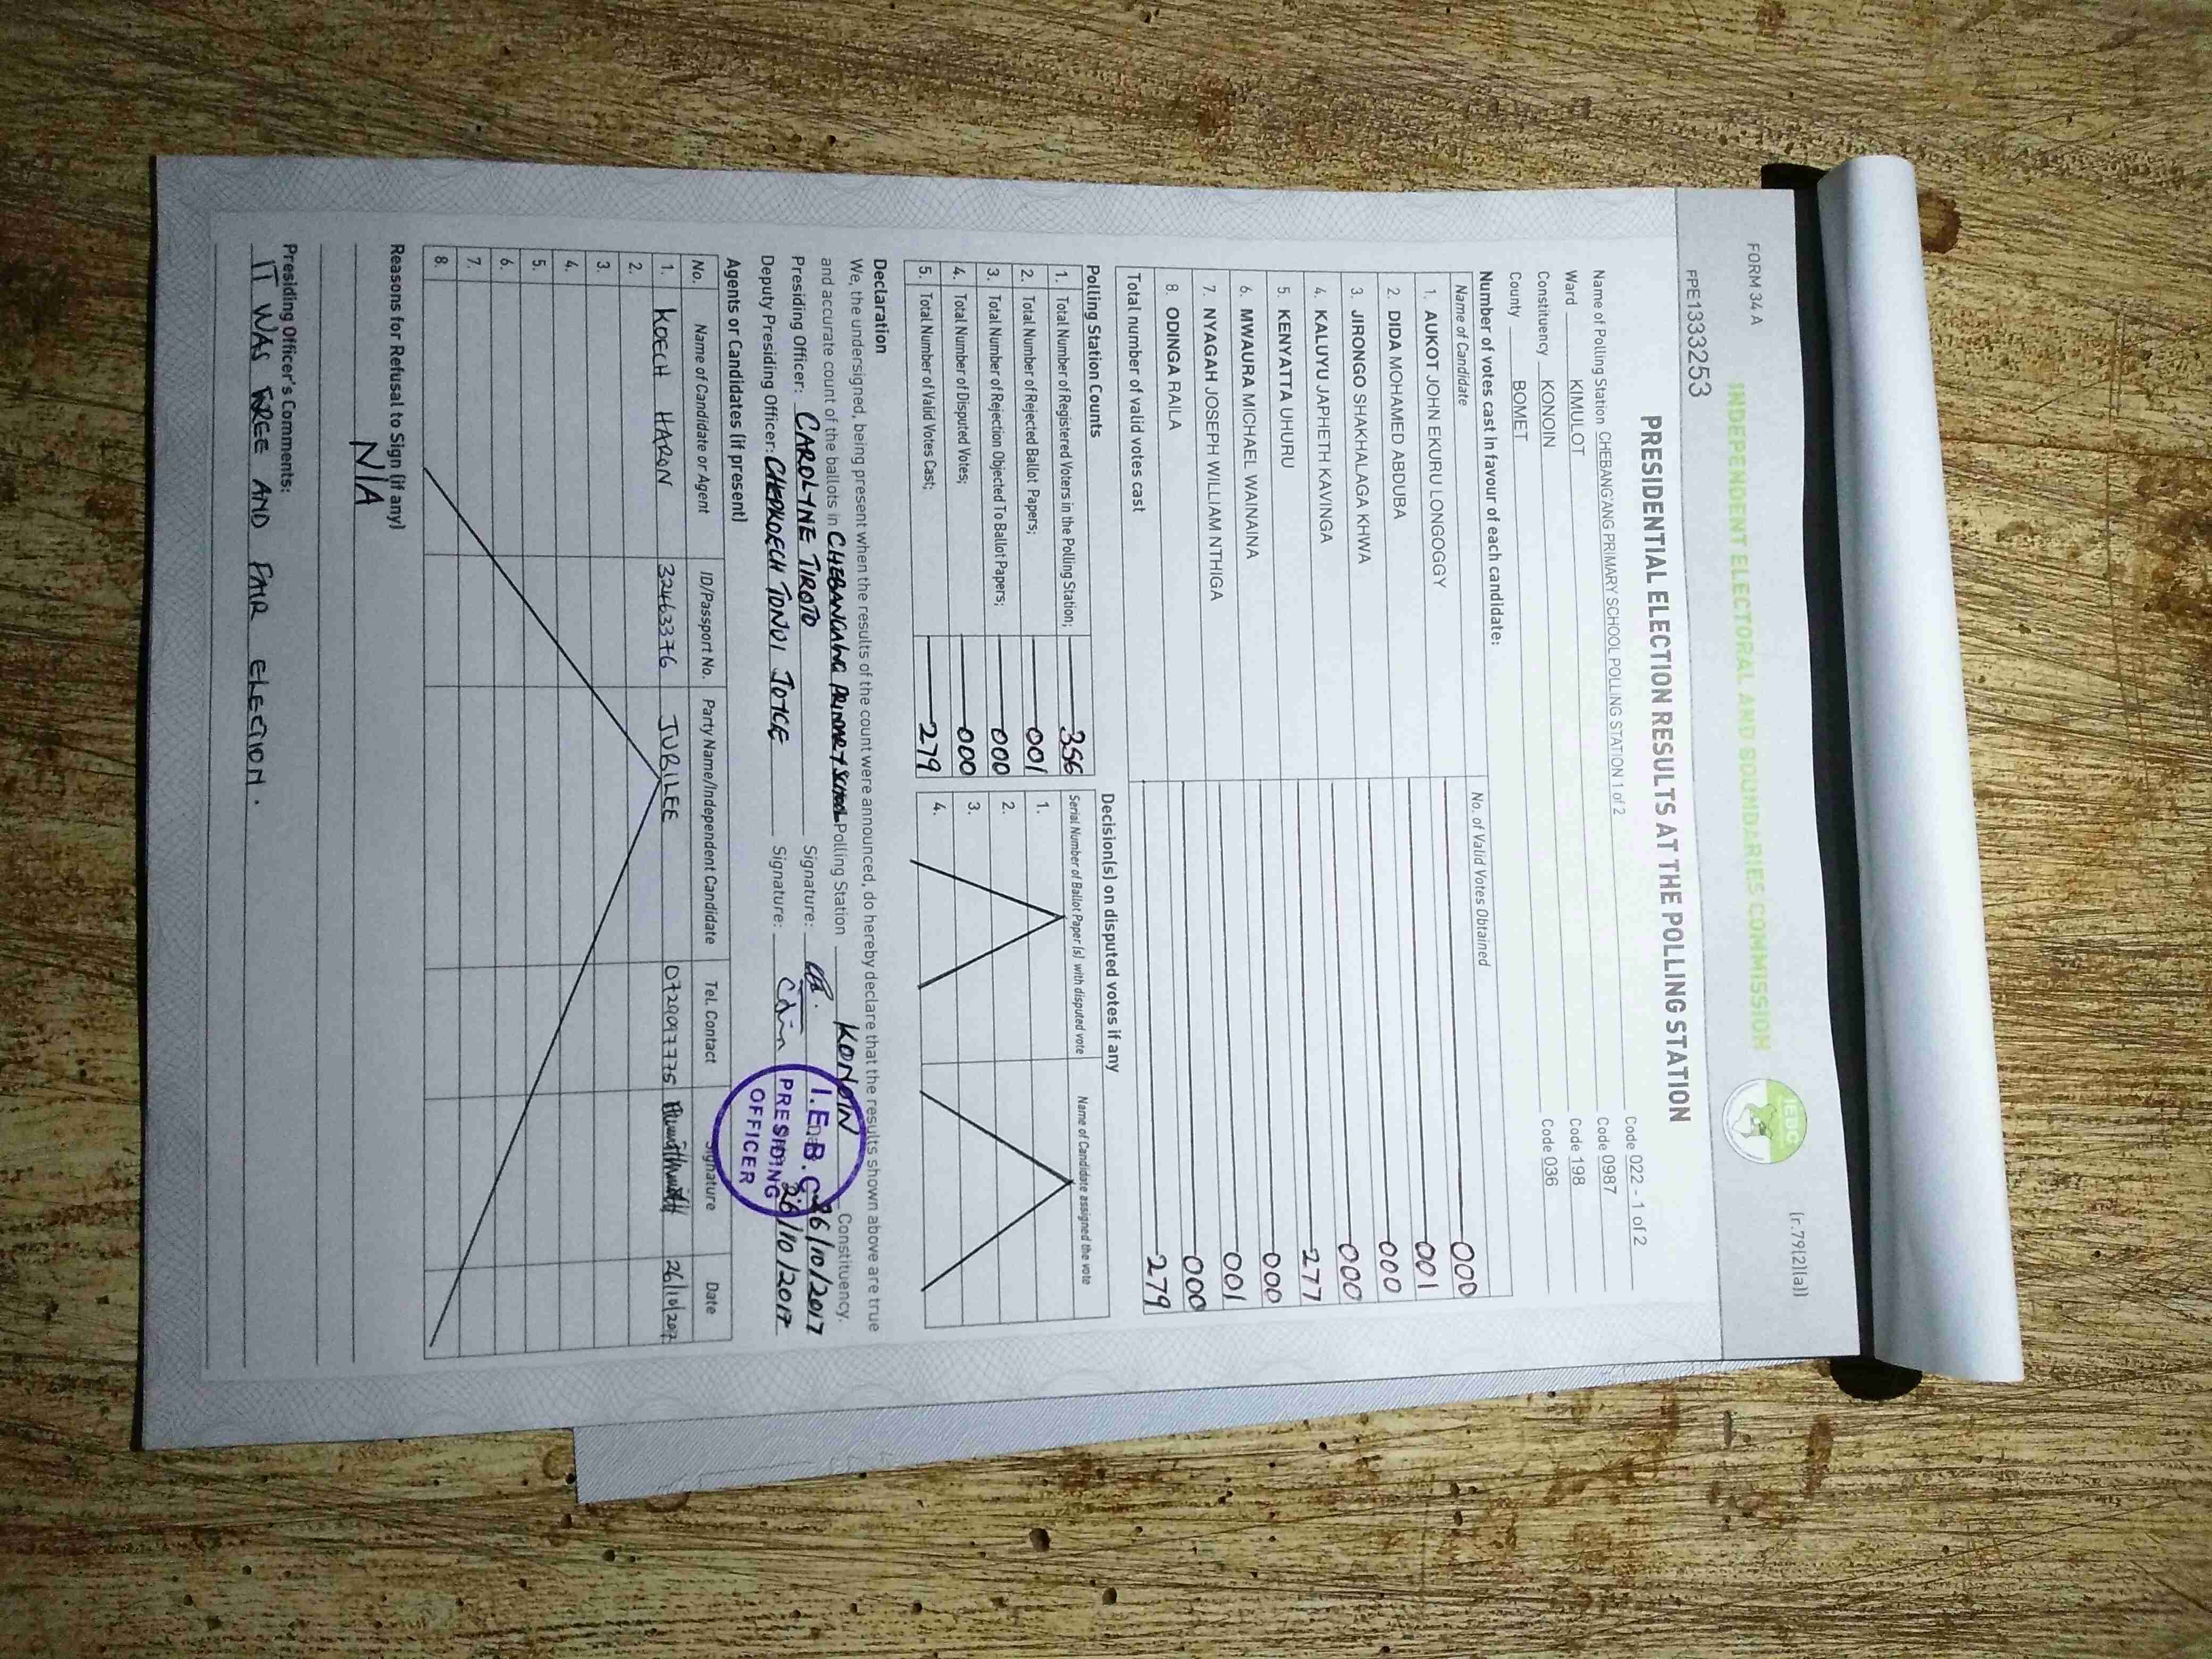 FORM 34 A
(r.79(2)(a))
INDEPENDENT ELECTORAL AND BOUNDARIES COMMISSION
IEBC
FPE1333253
PRESIDENTIAL ELECTION RESULTS AT THE POLLING STATION
Name of Polling Station CHEBANG'ANG PRIMARY SCHOOL POLLING STATION 1 of 2 Code 022 - 1 of 2
Ward KIMULOT Code 0987
Constituency KONOIN Code 198
County BOMET Code 036
Number of votes cast in favour of each candidate:
Name of Candidate No. of Valid Votes Obtained
1. AUKOT JOHN EKURU LONGOGGY 000
2. DIDA MOHAMED ABDUBA 001
3. JIRONGO SHAKHALAGA KHWA 000
4. KALUYU JAPHETH KAVINGA 000
5. KENYATTA UHURU 277
6. MWAURA MICHAEL WAINAINA 000
7. NYAGAH JOSEPH WILLIAM NTHIGA 001
8. ODINGA RAILA 000
Total number of valid votes cast 279
Polling Station Counts Decision(s) on disputed votes if any
1. Total Number of Registered Voters in the Polling Station; 356 Serial Number of Ballot Paper (s) with disputed vote Name of Candidate assigned the vote
2. Total Number of Rejected Ballot Papers; 001 1.
3. Total Number of Rejection Objected To Ballot Papers; 000 2.
4. Total Number of Disputed Votes; 000 3.
5. Total Number of Valid Votes Cast; 279 4.
Declaration
We, the undersigned, being present when the results of the count were announced, do hereby declare that the results shown above are true
and accurate count of the ballots in CHEBANGANG PRIMARY SCHOOL Polling Station KONOIN Constituency.
Presiding Officer: CAROLYNE TIROTO Signature: 26/10/2017
Deputy Presiding Officer: CHEPKOECH TONUI JOYCE Signature: 26/10/2017
I.E.B.C.
PRESIDING
OFFICER
Agents or Candidates (if present)
No. Name of Candidate or Agent ID/Passport No. Party Name/Independent Candidate Tel. Contact Signature Date
1. KOECH HARON 32463376 JUBILEE 0729097775 26/10/2017
2.
3.
4.
5.
6.
7.
8.
Reasons for Refusal to Sign (if any)
N/A
Presiding Officer's Comments:
IT WAS FREE AND FAIR ELECTION.